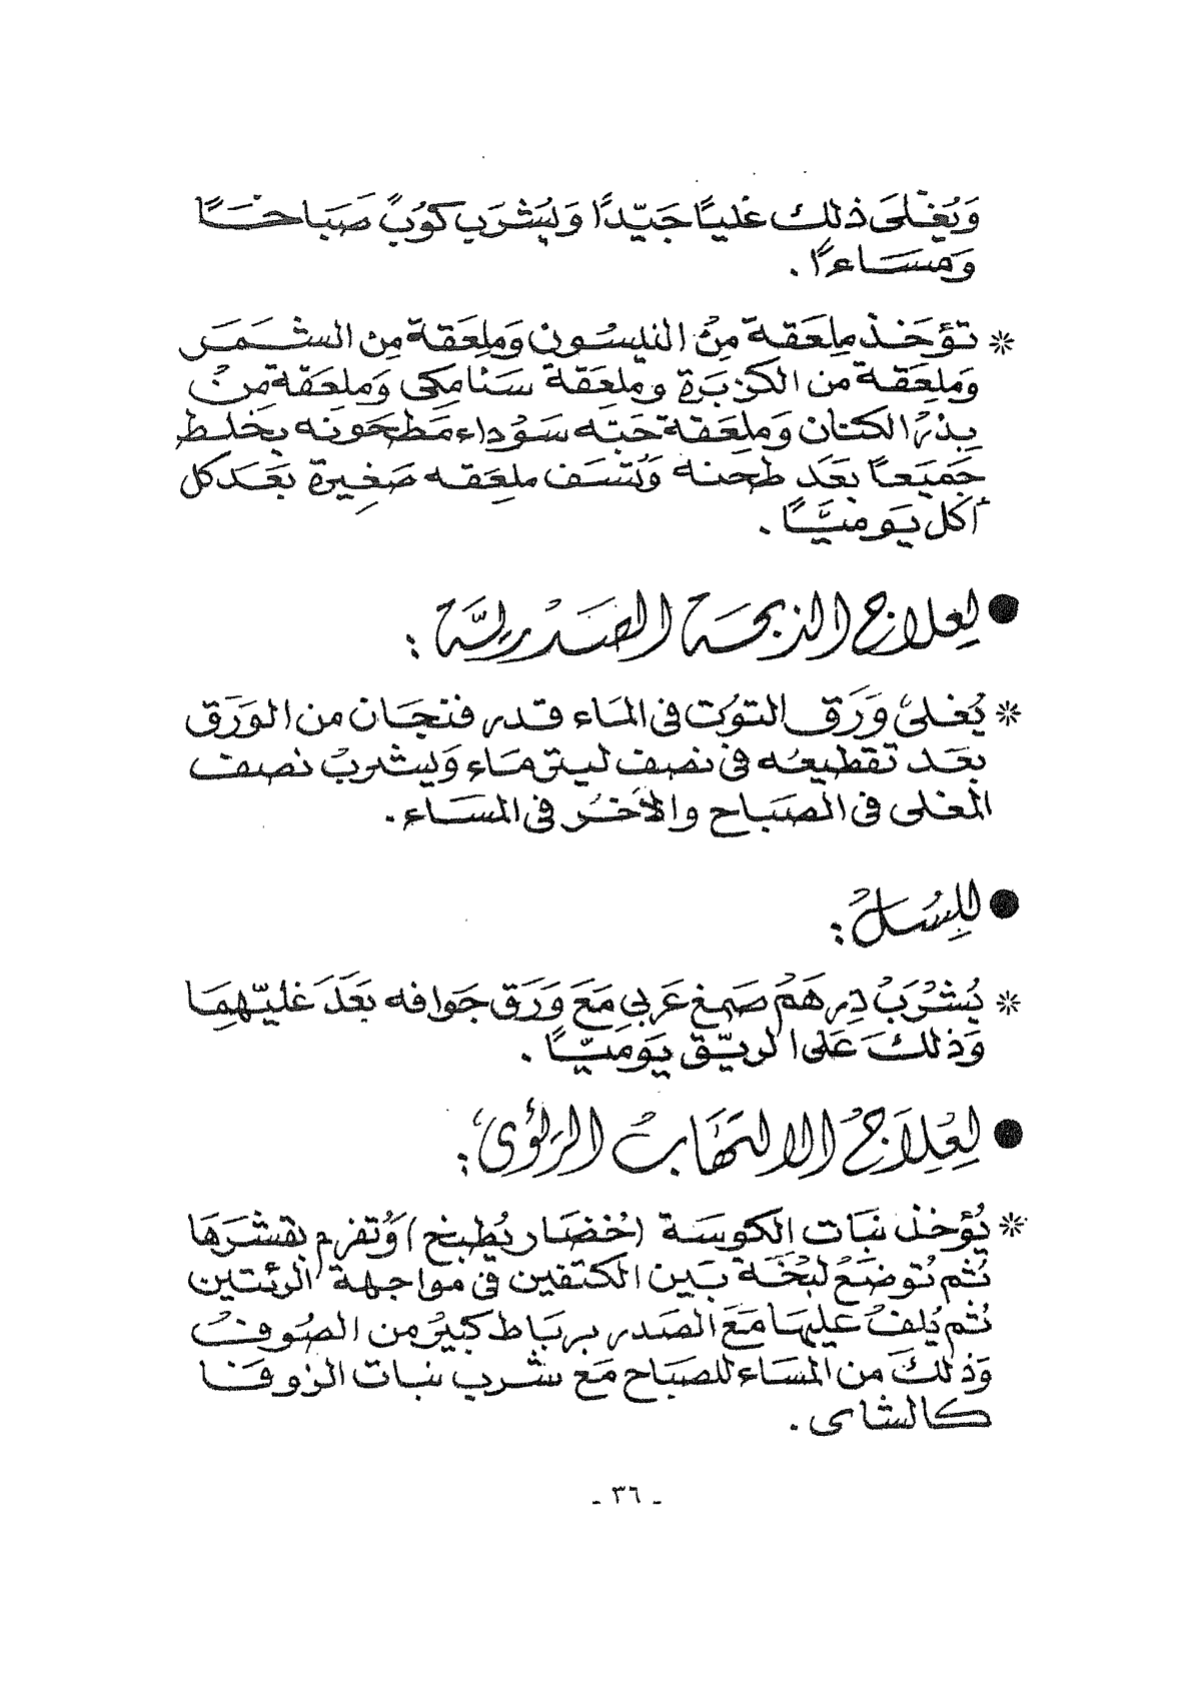 وَيُغْلَى ذلك غليًا جَيّدًا وَيُشْرَب كوُبً صَبَاحًا
وَمسَاءًا .
* تؤخَذ ملِعَقة مِنْ الينسُون وَملِعَقة مِن الشمَر
وَملِعَقة من الكزبَرة وملعَقة سَنامكى وَملعَقة منْ
بذرُ الكتان وَملعَقة حَبّه سَوُداء مَطحَونه يخَلط
جَميَعاً بعَدَ طحَنه وَتسَف ملعِقه صَغِيرة بعَد كل
أكل يَوميًّا .
● لِعِلاج الذبحة الصَدْريَّة :
* يُغلىَ وَرَق التوُت فى الماء قدر فنجَان من الوَرَق
بعَد تقطيعُه فى نصف ليتر مَاء وَيشربْ نصف
المغلى فى الصبَاح والأخرُ فى المسَاء .
● للِسُلْ :
* يُشْرَبْ دِرهَمْ صَمغ عَربِي مَعَ وَرَق جَوافه بَعَدَ غليّهِمَا
وَذلكَ عَلى الريّق يَوميّاً .
● لِعْلِاَجُ الالتهَابُ الرئوىَ :
* يُؤخذ نبَات الكوسَة (خُضَار يُطبخ) وَتُفرم بقشرَهَا
ثُم تُوضَعُ لبُخَة بَين الكتفين فى مواجهة الرئتين
ثُم يُلفْ عليهَا مَعَ الصَدر بربَاط كبيُر من الصُوفْ
وَذلكَ من المسَاء للصبَاح مَع شرب نبات الزوفَا
كالشاى .
- ٣٦ -